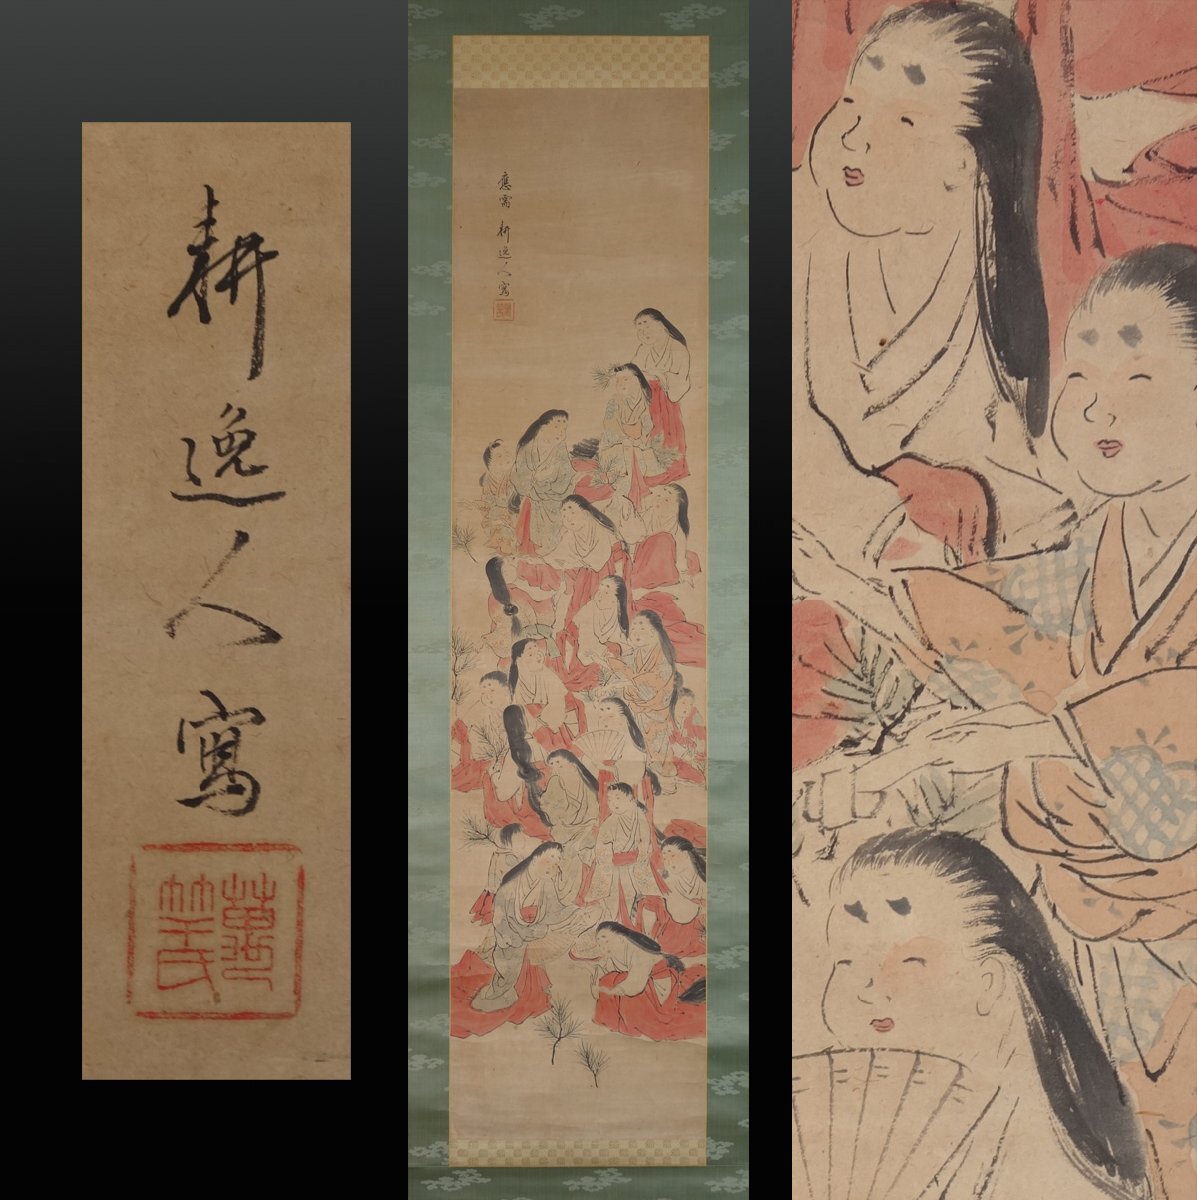 耕逸人寫
應需 耕逸人寫